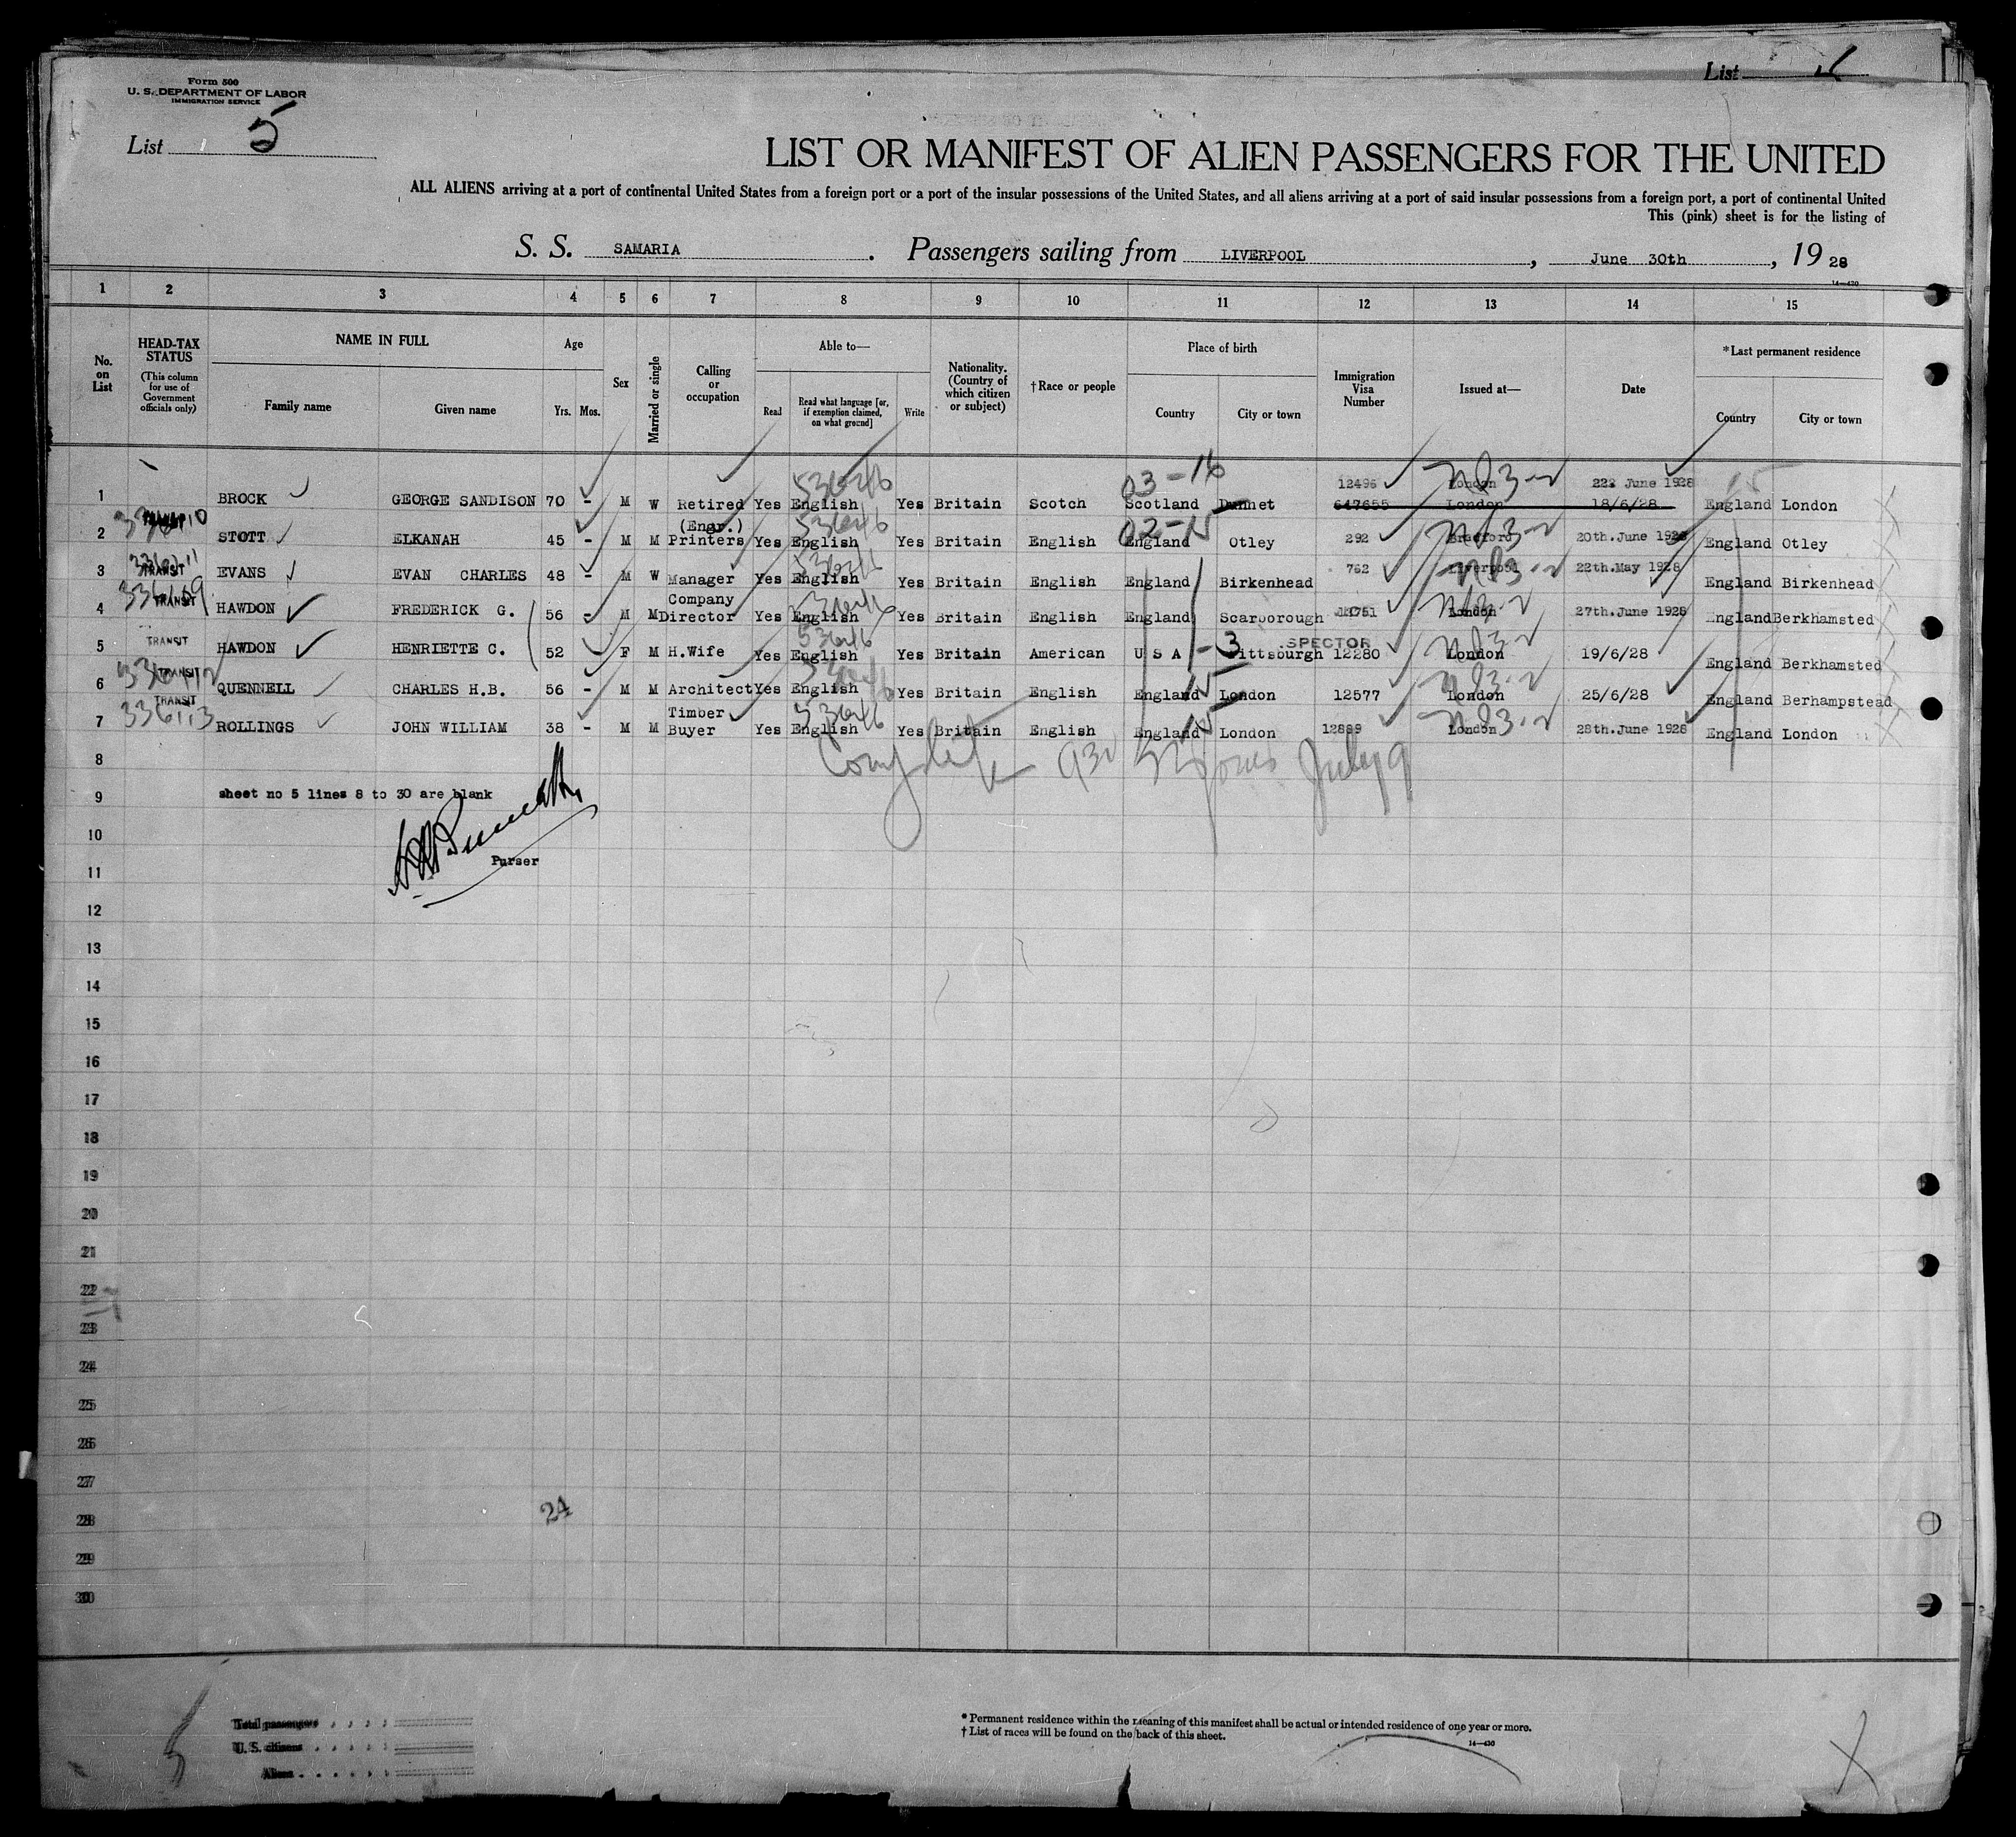 List
Form 500
U. S. DEPARTMENT OF LABOR
IMMIGRATION SERVICE
List 5
LIST OR MANIFEST OF ALIEN PASSENGERS FOR THE UNITED
ALL ALIENS arriving at a port of continental United States from a foreign port or a port of the insular possessions of the United States, and all aliens arriving at a port of said insular possessions from a foreign port, a port of continental United
This (pink) sheet is for the listing of
S. S. SAMARIA. Passengers sailing from LIVERPOOL, June 30th, 1928
14—430
1 2 3 4 5 6 7 8 9 10 11 12 13 14 15
No. on List
HEAD-TAX STATUS
(This column for use of Government officials only)
NAME IN FULL
Family name
Given name
Age
Yrs. Mos.
Sex
Married or single
Calling or occupation
Able to—
Read
Read what language [or, if exemption claimed, on what ground]
Write
Nationality. (Country of which citizen or subject)
†Race or people
Place of birth
Country
City or town
Immigration Visa Number
Issued at—
Date
*Last permanent residence
Country
City or town
03-16 12496 London 22 June 1928
1 BROCK GEORGE SANDISON 70 - M W Retired (Engr.) Yes English Yes Britain Scotch Scotland Dunnet 647655 London 18/6/28 England London
2 STOTT ELKANAH 45 - M M Printers Yes English Yes Britain English England Otley 292 Bradford 20th.June 1928 England Otley
3 TRANSIT EVANS EVAN CHARLES 48 - M W Manager Yes English Yes Britain English England Birkenhead 762 Liverpool 22th.May 1928 England Birkenhead
4 TRANSIT HAWDON FREDERICK G. 56 - M M Company Director Yes English Yes Britain English England Scarborough London 27th.June 1928 England Berkhamsted
SPECTOR
5 TRANSIT HAWDON HENRIETTE C. 52 F M H.Wife Yes English Yes Britain American U S A - 3 Pittsburgh 12280 London 19/6/28 England Berkhamsted
6 TRANSIT QUENNELL CHARLES H.B. 56 - M M Architect Yes English Yes Britain English England London 12577 London 25/6/28 England Berhampstead
7 TRANSIT 336113 ROLLINGS JOHN WILLIAM 38 - M M Timber Buyer Yes English Yes Britain English England London 12889 London 28th.June 1928 England London
8 July 9
9 sheet no 5 lines 8 to 30 are blank
10
Purser
11
12
13
14
15
16
17
18
19
20
21
22
23
24
25
26
27
28 24
29
30
Total passengers
U. S. citizens
Aliens
* Permanent residence within the meaning of this manifest shall be actual or intended residence of one year or more.
† List of races will be found on the back of this sheet.
14—430